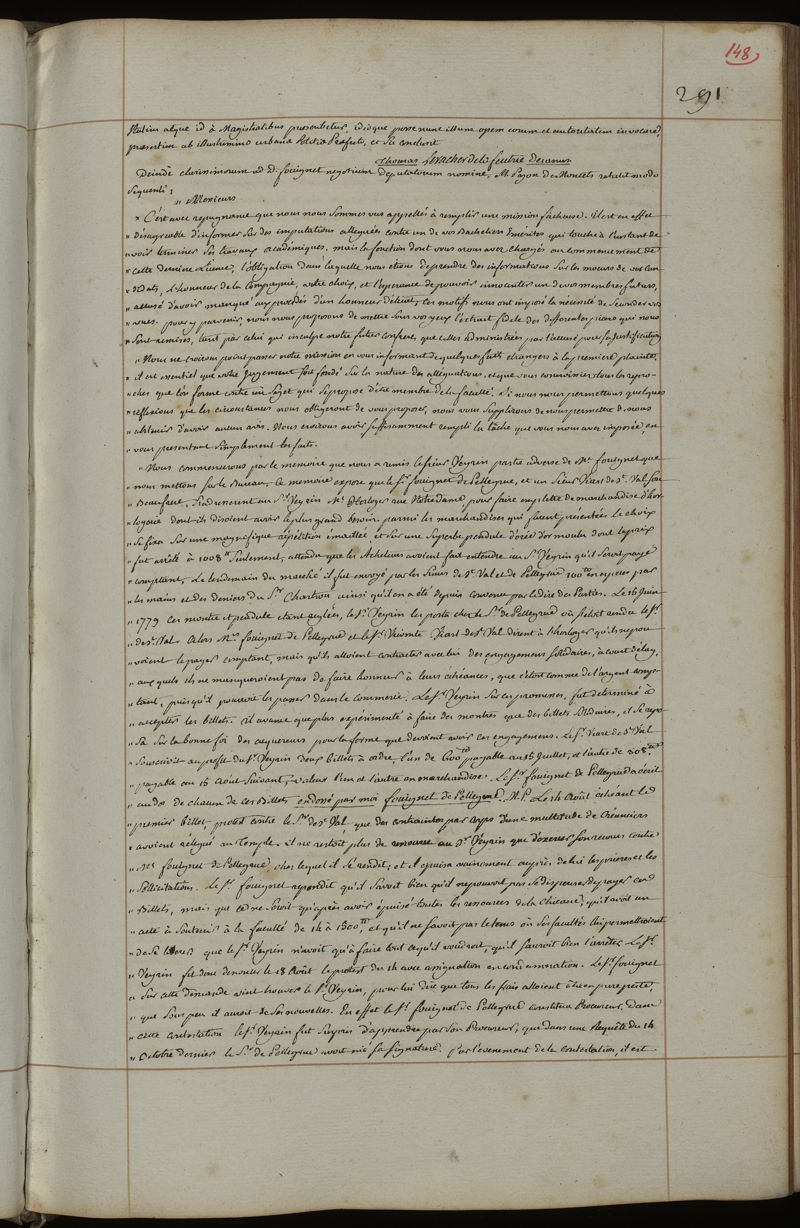 148
291
Statim atque id à Magistratibus præsentetur, idióque posse nunc illum opem eorum et autoritatem invocare,
præsertim ab illustrissimo urbanæ Politiæ Præfecto, et sic conclusit
Thomas Levacher de la feutrie Decanus
Deinde clarissimorum ad D. fouignet negotium deputatorum nomine, M. Pajon de Moncets retulit modo
sequenti:
" Messieurs
" C'est avec repugnance que nous nous sommes vus appellés à remplir une mission facheuse. Il est en effet
" désagreable d'informer sur des imputations alleguées contre un de vos Bacheliers Emérites qui touche à l'instant de
" voir terminer ses travaux académiques. mais la fonction dont vous nous avez chargés au commencement de
" cette derniere Licence, l'obligation dans laquelle nous etions de prendre des informations sur les mœurs de vos Can
" didats, l'honneur de la Compagnie, votre choix, et l'esperance de pouvoir innocenter un de vos membres futurs,
" accusé d'avoir manqué aux procédés d'un honneur délicat, ces motifs nous ont imposé la nécessité de seconder vos
" vues. pour y parvenir, nous nous proposons de mettre sous vos yeux l'extrait fidele des differentes pieces qui nous
" sont remises, tant par celui qui inculpe notre futur confrere, que celles administrées par l'accusé pour sa justification
" Nous ne croirons point passer notre mission en vous informant de quelques faits etrangers à la premiere plainte.
" il est essentiel que votre jugement soit fondé sur la nature des allegations, et que vous connoissiez tous les repro-
" ches que l'on forme contre un sujet qui se propose d'être membre de la faculté. Si nous nous permettons quelques
" réflexions que les circonstances nous obligeront de vous proposer, nous vous supplierons de nous permettre de nous
" abstenir d'avoir aucun avis. Nous croirons avoir suffisamment rempli la tâche que vous nous avez imposée en
" vous presentant simplement les faits.
" Nous commencerons par le memoire que nous a remis le sieur Veyrin partie adverse de Mr. fouignet que
" nous mettons sur le Bureau. Ce memoire expose que le Sr. fouignet de Pellegrue, et un Sieur Viart de St. Val son
" Beaufrere, s'adresserent au Sr. Veyrin Md. Horloger rue Notre dame pour faire emplette de marchandise d'hor
" logerie dont ils disoient avoir le plus grand besoin. parmi les marchandises qui furent présentées le choix
" se fixa sur une magnifique répétition émaillée et sur une superbe pendule dorée d'or moulu dont le prix
" fut arrêté à 1008 tt seulement, attendu que les Acheteurs avoient fait entendre au Sr. Veyrin qu'il seroit payé
" comptant. Le lendemain du marché il fut envoyé par les Sieurs de St. Val et de Pellegrue 100 tt en especes par
" les mains et des deniers du Sr. Chartron ainsi qu'il en a été depuis convenu par le dire des Parties. Le 16 Juin
" 1779 les montre et pendule etant reglées, le Sr. Veyrin les porta chez le Sr. de Pellegrue où s'etoit rendu le Sr.
" de St. Val. Alors Mrs. fouignet de Pellegrue et le Sr. Vicomte Viart de St. Val dirent à l'horloger qu'ils ne pou
" voient le payer comptant, mais qu'ils alloient contracter avec lui des engagemens solidaires, à court délay,
" aux quels ils ne manqueroient pas de faire honneur à leurs échéances, que c'etoit comme de l'argent comp-
" tant, puisqu'il pourroit les passer dans le commerce. Le Sr. Veyrin sur ces promesses, fut determiné à
" accepter les billets. il avance que plus experimenté à faire des montres que des billets solidaires, il se repo
" sa sur la bonne foi des acquereurs pour la forme que devoient avoir ces engagemens. Le Sr. Viart de St. Val
" souscrivit au profit du Sr. Veyrin deux billets à ordre, l'un de 600 tt payable au 15 Juillet, et l'autre de 308 tt
" payable au 15 Aout suivant, valeur l'un et l'autre en marchandise. Le Sr. fouignet de Pellegrue a écrit
" au dos de chacun de ces Billets endossé par moi fouignet de Pellegrue. N.P. Le 14 Août échéant le
" premier billet, protest contre le Sr. de St. Val, que des contraintes par corps d'une multitude de Créanciers
" avoient rélegué au Temple. il ne restoit plus de ressource au Sr. Veyrin que d'exercer son recours contre
" Mr. fouignet de Pellegrue, chez lequel il se rendit, et il épuisa vainement auprès de lui les prieres et les
" Sollicitations. Le Sr. fouignet repondit qu'il savoit bien qu'il ne pouvoit pas se dispenser de payer ces
" Billets, mais que ce ne seroit qu'après avoir épuisé toutes les ressources de la chicane, qu'il avoit un
" acte à soutenir à la faculté de 14 à 1500 tt, et qu'il ne savoit pas le tems où ses facultés lui permettroient
" de se libérer que le Sr. Veyrin n'avoit qu'à faire tout ce qu'il voudroit, qu'il sauroit bien l'arrêter. Le Sr.
" Veyrin fit donc denoncer le 18 Août le protest du 14 avec assignation en condamnation. Le Sr. fouignet
" sur cette demande vint trouver le Sr. Veyrin, pour lui dire que tous les frais alloient être en pure perte,
" que sous peu il auroit de ses nouvelles. En effet le Sr. fouignet de Pellegrue constitua Procureur, Dans
" cette contestation le Sr. Veyrin fut surpris d'apprendre par son Procureur, que dans une Requête du 14
" Octobre dernier le Sr. de Pellegrue avoit nié sa signature. Par l'evenement de la contestation, il est